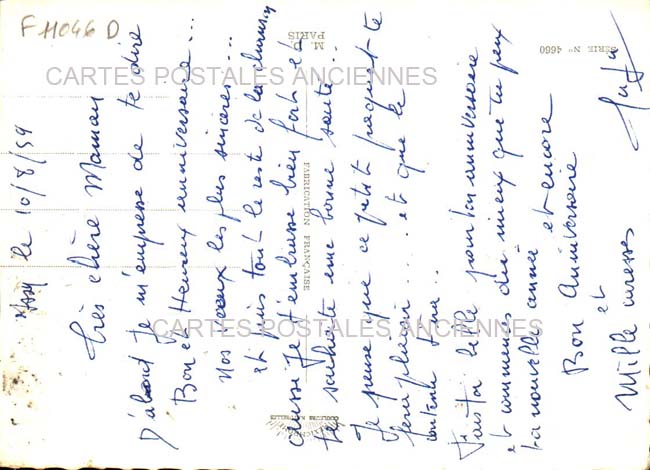 F 11046 D
CARTES POSTALES ANCIENNES
CARTES POSTALES ANCIENNES
M. D.
PARIS
FABRICATION FRANÇAISE
SÉRIE N° 4660
le 10/8/59
Très chère Maman
D'abord je m'empresse de te dire
Bon et Heureux anniversaire...
Nos vœux les plus sincères...
et puis tout le reste de la chanson
aussi Je t'embrasse bien fort et
te souhaite une bonne santé...
Je pense que ce petit paquet te
fera plaisir... et que le
contenu
Sois belle pour ton anniversaire
et commences du mieux que tu peux
ta nouvelle année et encore
Bon Anniversaire
et
Mille caresses